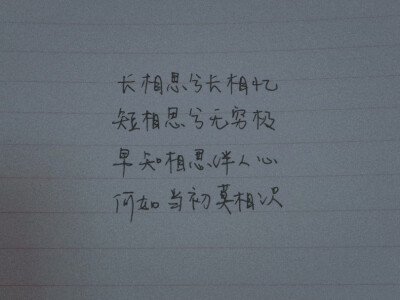 长相思兮长相忆
短相思兮无穷极
早知相思绊人心
何如当初莫相识